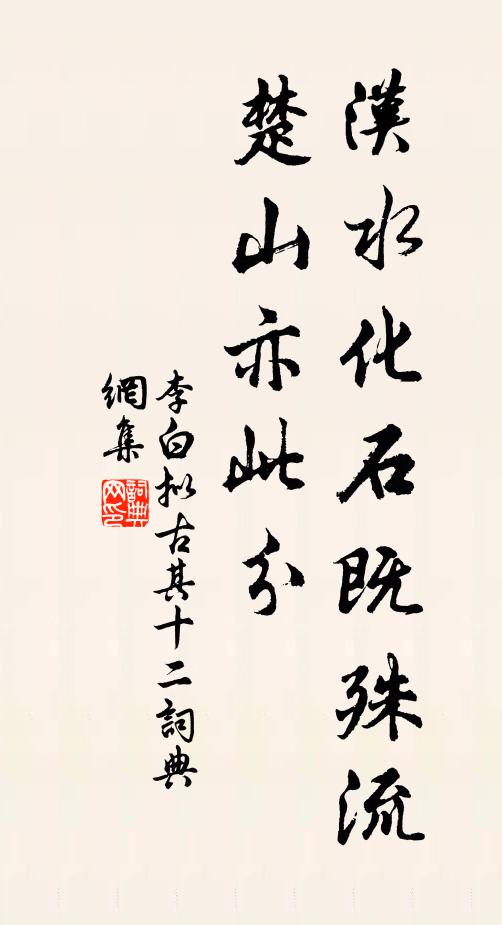 漢水化石既殊流
楚山亦此分
李白拟古其十二詞典
網集
詞典網印